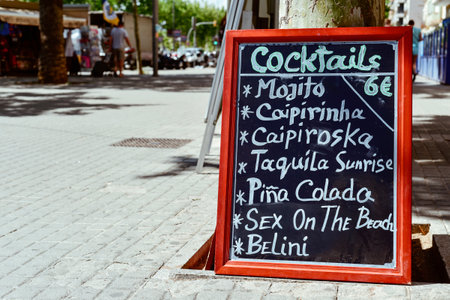 Cocktails
* Mojito 6€
* Caipirinha
* Caipiroska
* Taquila Sunrise
* Piña Colada
* Sex On The Beach
* Belini